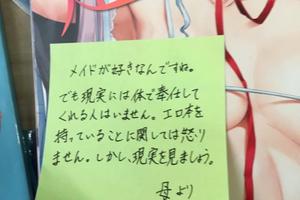 メイドが好きなんですね。
でも現実には体で奉仕して
くれる人はいません。エロ本を
持っていることに関しては怒り
ません。しかし、現実を見ましょう。
母より